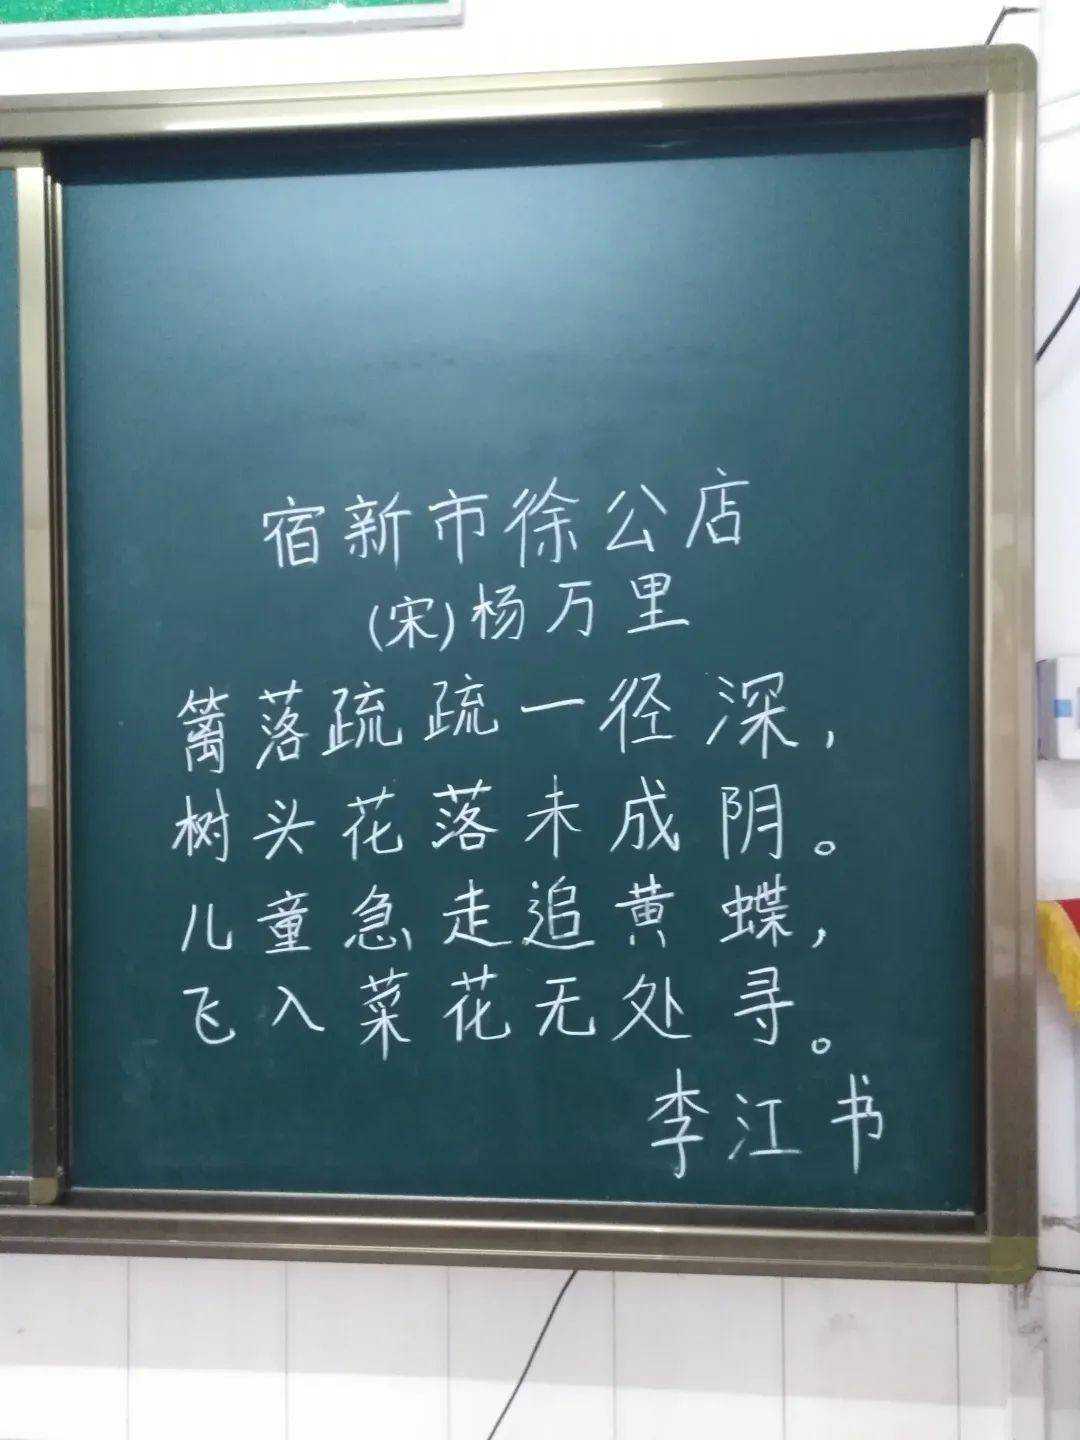 宿新市徐公店
(宋)杨万里
篱落疏疏一径深，
树头花落未成阴。
儿童急走追黄蝶，
飞入菜花无处寻。
李江书